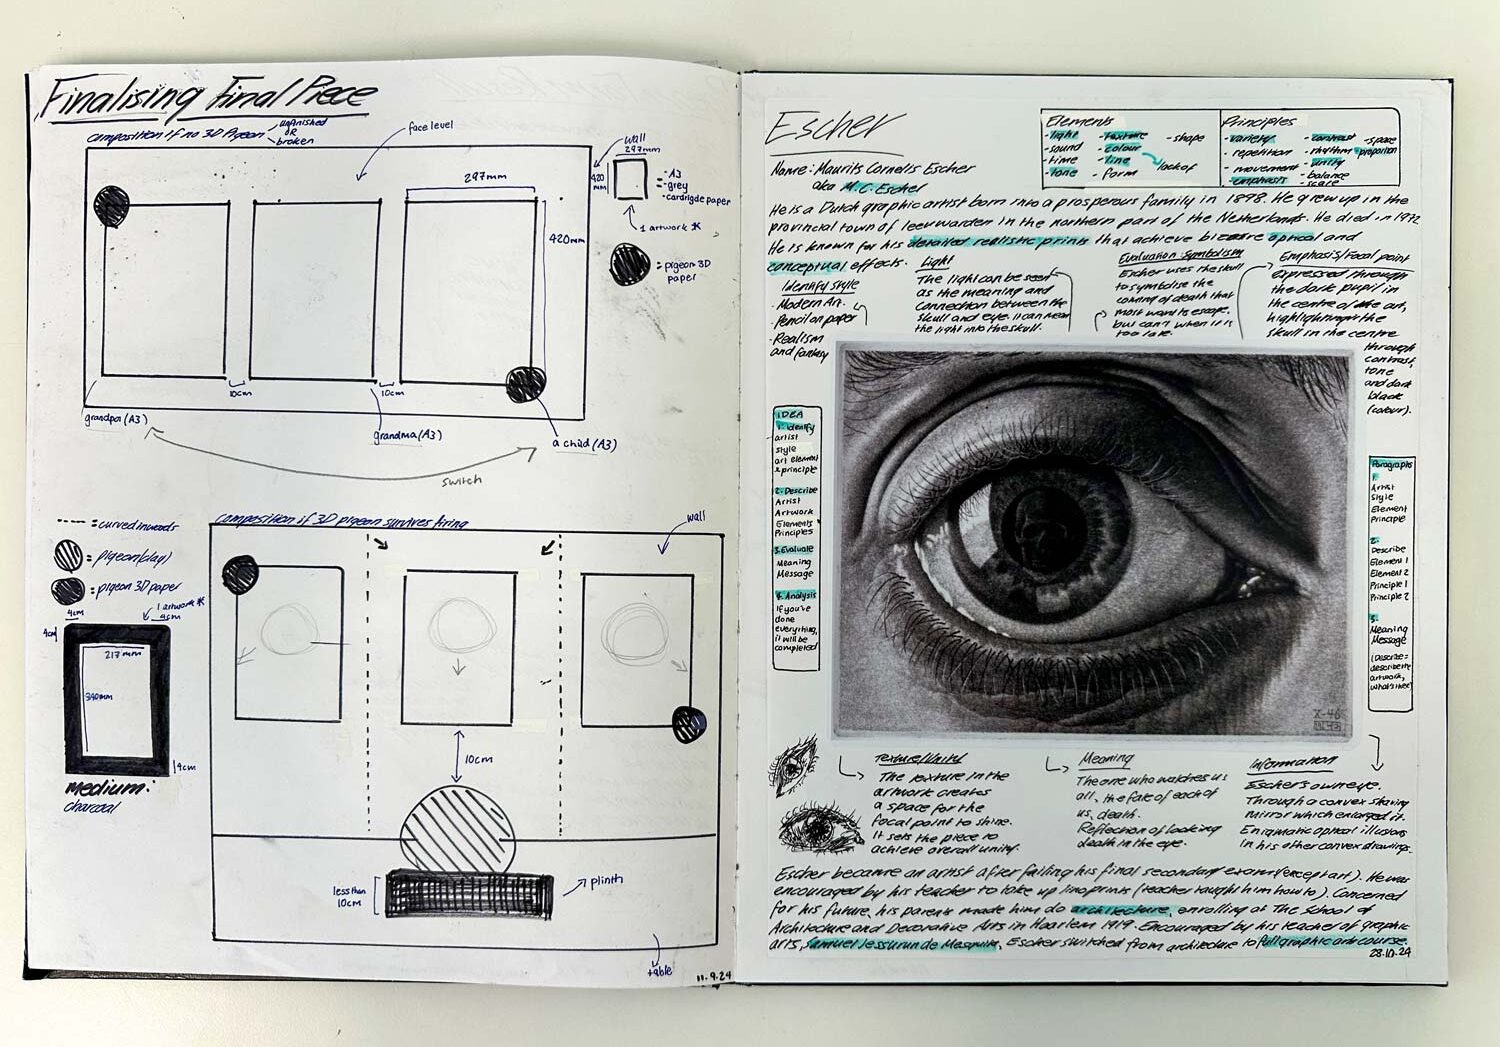 Finalising Final Piece
composition if no 3D Pigeon
unfinished
OR
broken
face level
wall
297mm
420
mm
- A3
- grey
- cardrigde paper
1 artwork *
= pigeon 3D
paper
297mm
420mm
10cm
10cm
grandpa (A3)
grandma (A3)
a child (A3)
switch
composition if 3D pigeon survives firing
wall
= curved inwards
= pigeon (clay)
= pigeon 3D paper
1 artwork *
4cm
4cm
4cm
217mm
340mm
4cm
medium:
charcoal
10cm
less than
10cm
plinth
table
11.9.24
Escher
Name: Maurits Cornelis Escher
aka M.C. Escher
Elements
- light
- sound
- time
- tone
- texture
- colour
- line
- form
- shape
lack of
Principles
- variety
- repetition
- movement
- emphasis
- contrast
- rhythm
- unity
- balance
- scale
- space
- proportion
He is a Dutch graphic artist born into a prosperous family in 1898. He grew up in the
provincial town of leeuwarden in the northern part of the Netherlands. He died in 1972
He is known for his detailed realistic prints that achieve bizarre optical and
conceptual effects.
Identify style
- Modern Art.
- Pencil on paper
- Realism
and fantasy
Light
The light can be seen
as the meaning and
connection between the
skull and eye. it can mean
the light into the skull.
Evaluation Symbolism
Escher uses the skull
to symbolise the
coming of death that
most want to escape.
but can't when it is
too late.
Emphasis/Focal point
expressed through
the dark pupil in
the centre of the art,
highlighting the
skull in the centre
through
contrast,
tone
and dark
black
(colour).
IDEA
1. Identify
artist
style
art element
& principle
2. Describe
Artist
Artwork
Elements
Principles
3. Evaluate
Meaning
Message
4. Analysis
If you've
done
everything,
it will be
completed
Paragraphs
1.
Artist
Style
Element
Principle
2.
Describe
Element 1
Element 2
Principle 1
Principle 2
3.
Meaning
Message
(Describe =
describe the
artwork,
what's there)
X-46
Texture/Unity
The texture in the
artwork creates
a space for the
focal point to shine.
It sets the piece to
achieve overall unity.
Meaning
The one who watches us
all, the fate of each of
us, death.
Reflection of looking
death in the eye.
Information
Escher's own eye.
Through a convex shaving
mirror which enlarged it.
Enigmatic optical illusions
In his other convex drawings.
Escher became an artist after failing his final secondary exam (except art). He was
encouraged by his teacher to take up linoprints (teacher taught him how to). Concerned
for his future, his parents made him do architecture, enrolling at The School of
Architecture and Decorative Arts in Haarlem 1919. Encouraged by his teacher of graphic
arts, Samuel Jessurun de Mesquita, Escher switched from architecture to full graphic arts course.
28.10.24